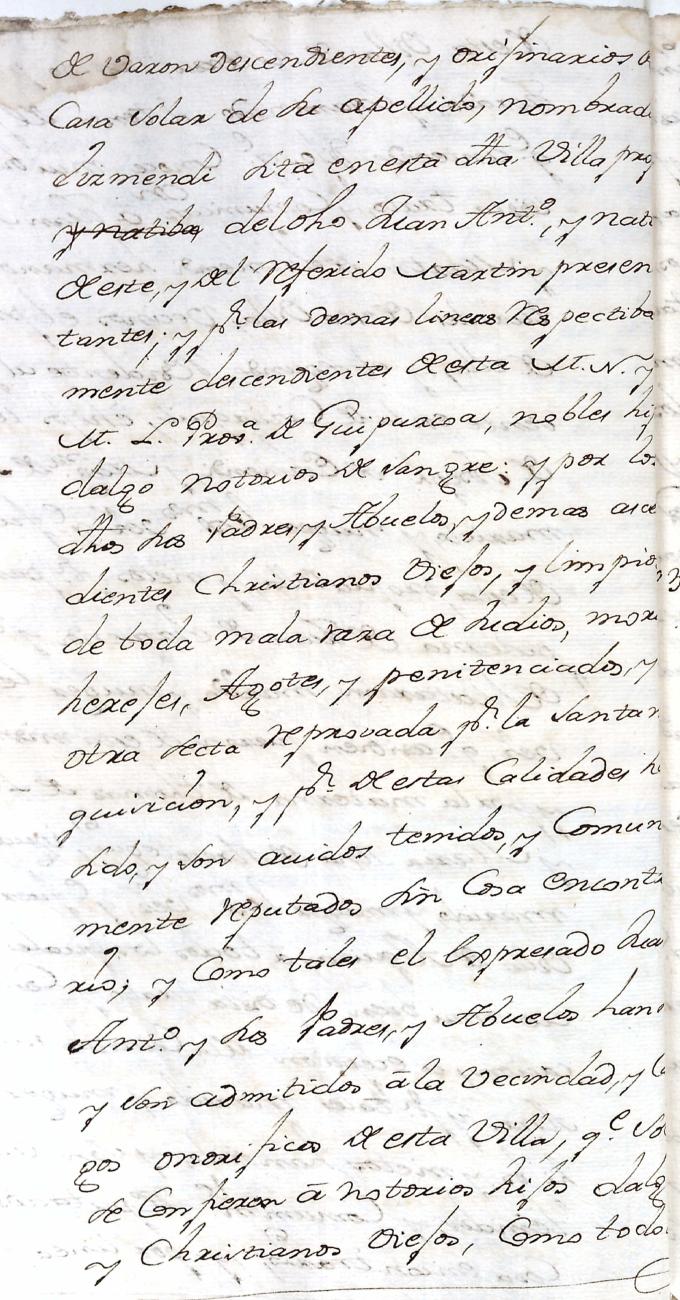 de varon descendientes, y orijinarios
Casa solar de su apellido, nombrad
Lizmendi sita en esta dha Villa pro
y natiba del dho Juan Antº, y nat
de este, y del referido Martin presen
tantes; y pr. las demas lineas respectiba
mente descendientes de esta M. N. y
M. L. Prova. de Guipuzcoa, nobles hij
dalgo notorios de sangre: y por lo
dhos sus Padres, y Abuelos, y demas asce
dientes Christianos viejos, y limpios
de toda mala raza de Judios, moro
herejes, Agotes, y penitenciados, y
otra secta reprovada pr. la santa
quisicion, y pr. de estas Calidades h
sido, y son auidos tenidos, y Comun
mente reputados sin Cosa encontr
rio; y Como tales el Expresado Jua
Antº y sus Padres, y Abuelos han
y son admitidos â la vecindad, y
gos onorificos de esta Villa, qe. so
se Confieren â notorios hijos dalg
y Christianos viejos, Como todo